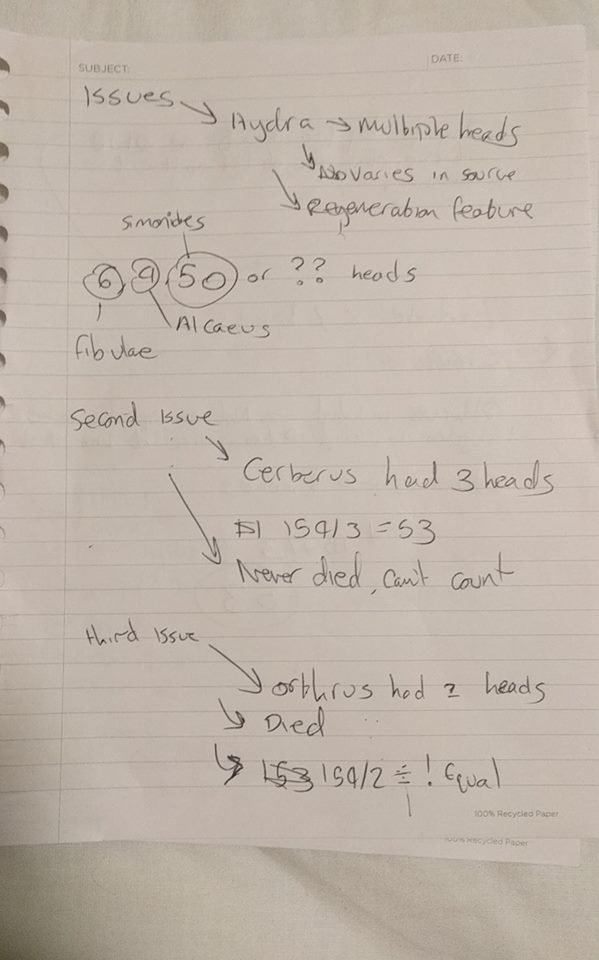 SUBJECT: DATE:
Issues → Hydra → Multiple heads
↳ No Varies in source
↘ Regeneration feature
Simonides
6 9 50 or ?? heads
Alcaeus
fibulae
Second issue
Cerberus had 3 heads
159/3 = 53
Never died, Can't count
third issue
Orthrus had 2 heads
Died
159/2 = ! Equal
100% Recycled Paper
100% Recycled Paper